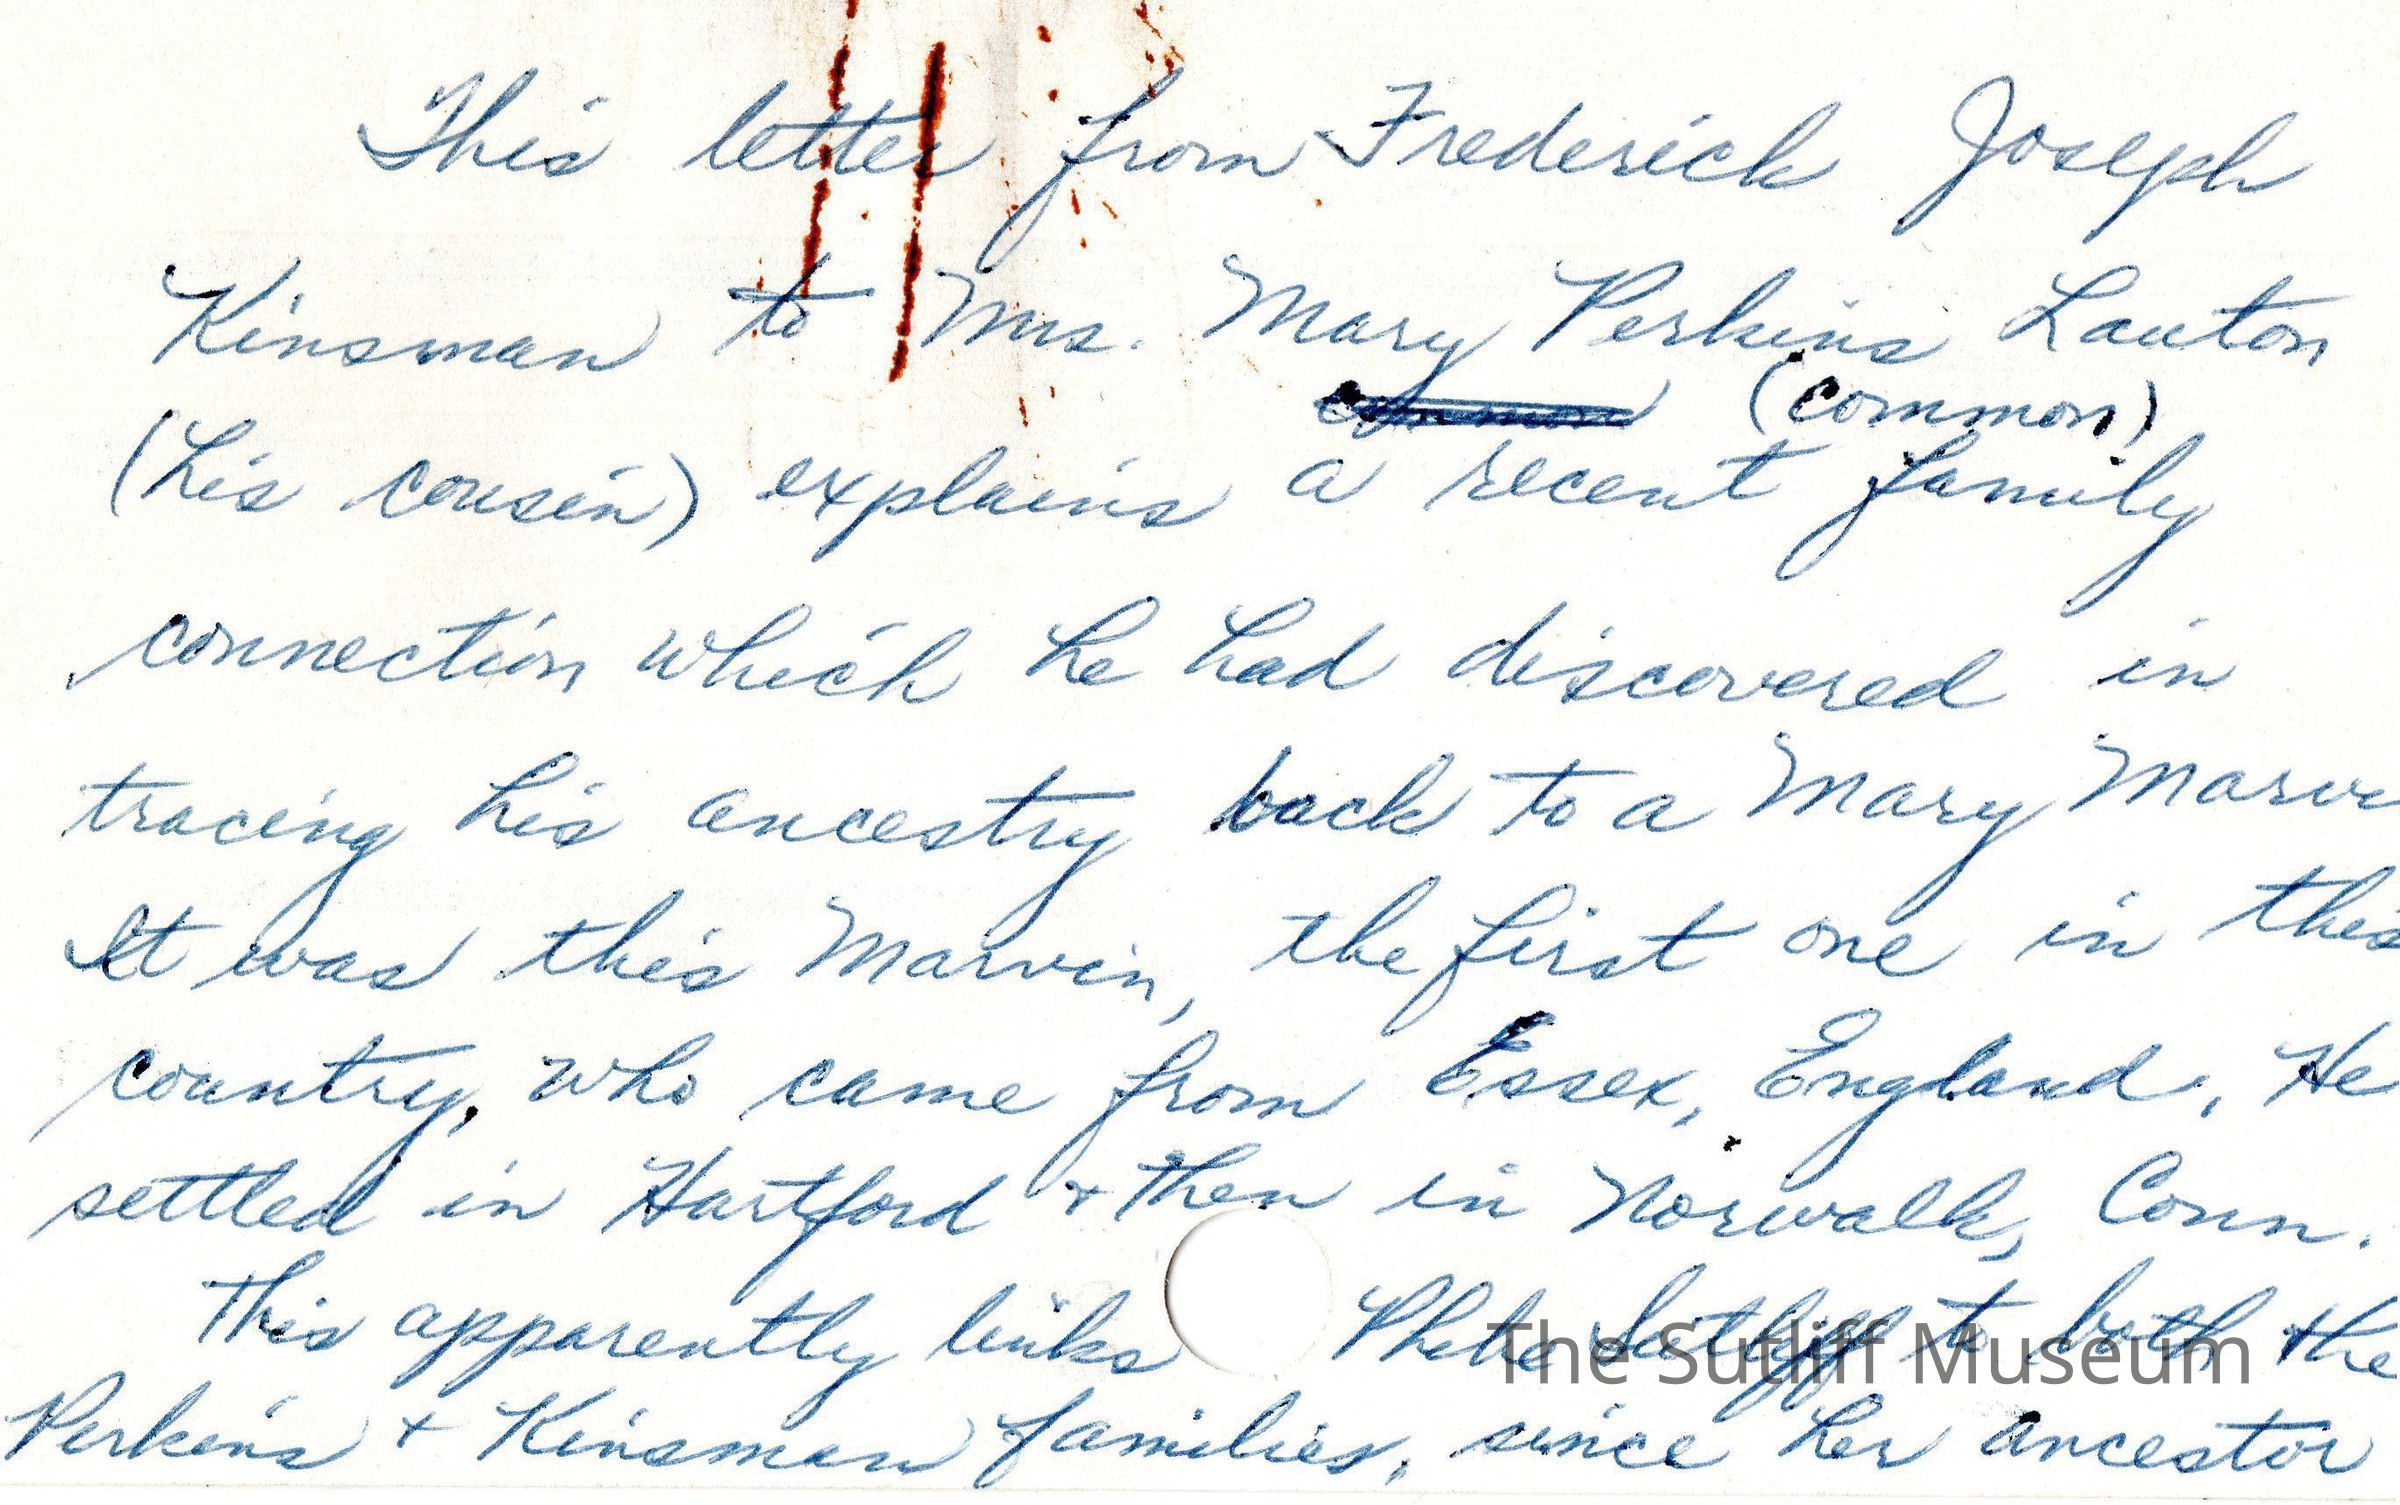 This letter from Frederick Joseph
Kinsman to Mrs. Mary Perkins Lauton
common (common)
(his cousin) explains a recent family
connection which he had discovered in
tracing his ancestry back to a Mary Marvi
It was this Marvin, the first one in this
country, who came from Essex, England. He
settled in Hartford + then in Norwalk, Conn.
This apparently links Phebe Sutliff to both the
The Sutliff Museum
Perkins + Kinsman families, since her ancestor